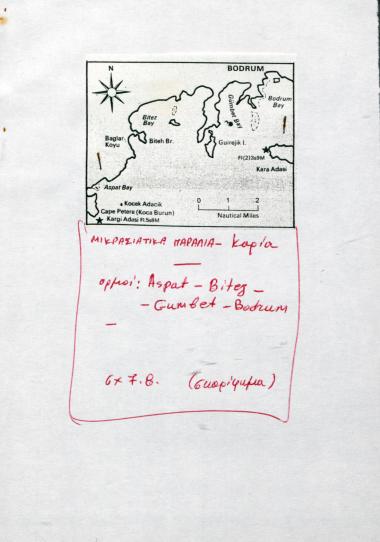 N
BODRUM
Bodrum
Bay
Gümbet Bay
Bitez
Bay
Baglar
Koyu
Biteh Br.
Guirejik I.
Fl(2)3s9M
Kara Adasi
Aspat Bay
Kocek Adacik
Cape Petera (Koca Burun)
Kargi Adasi Fl.5s8M
0 1 2
Nautical Miles
ΜΙΚΡΑΣΙΑΤΙΚΑ ΠΑΡΑΛΙΑ - Καρία
ορμοί: Aspat - Bitez -
- Gumbet - Bodrum
-
σχ 7.8. (σκαρίφημα)